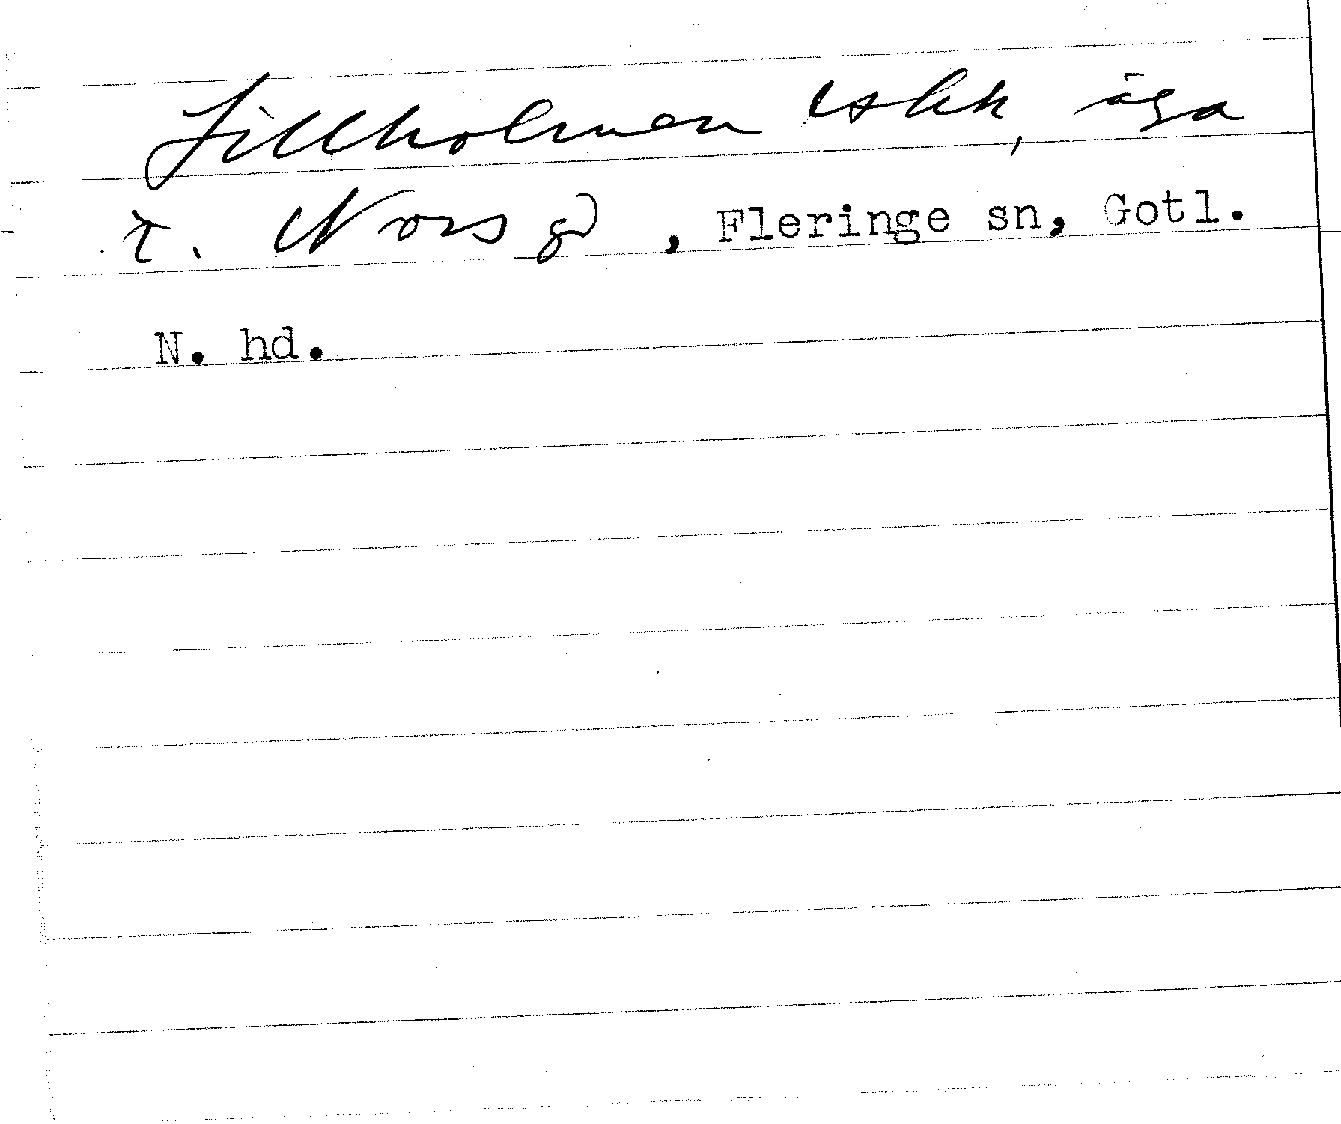 Lillholmen uskk, äga
t. Nors gd, Fleringe sn, Gotl.
N. hd.